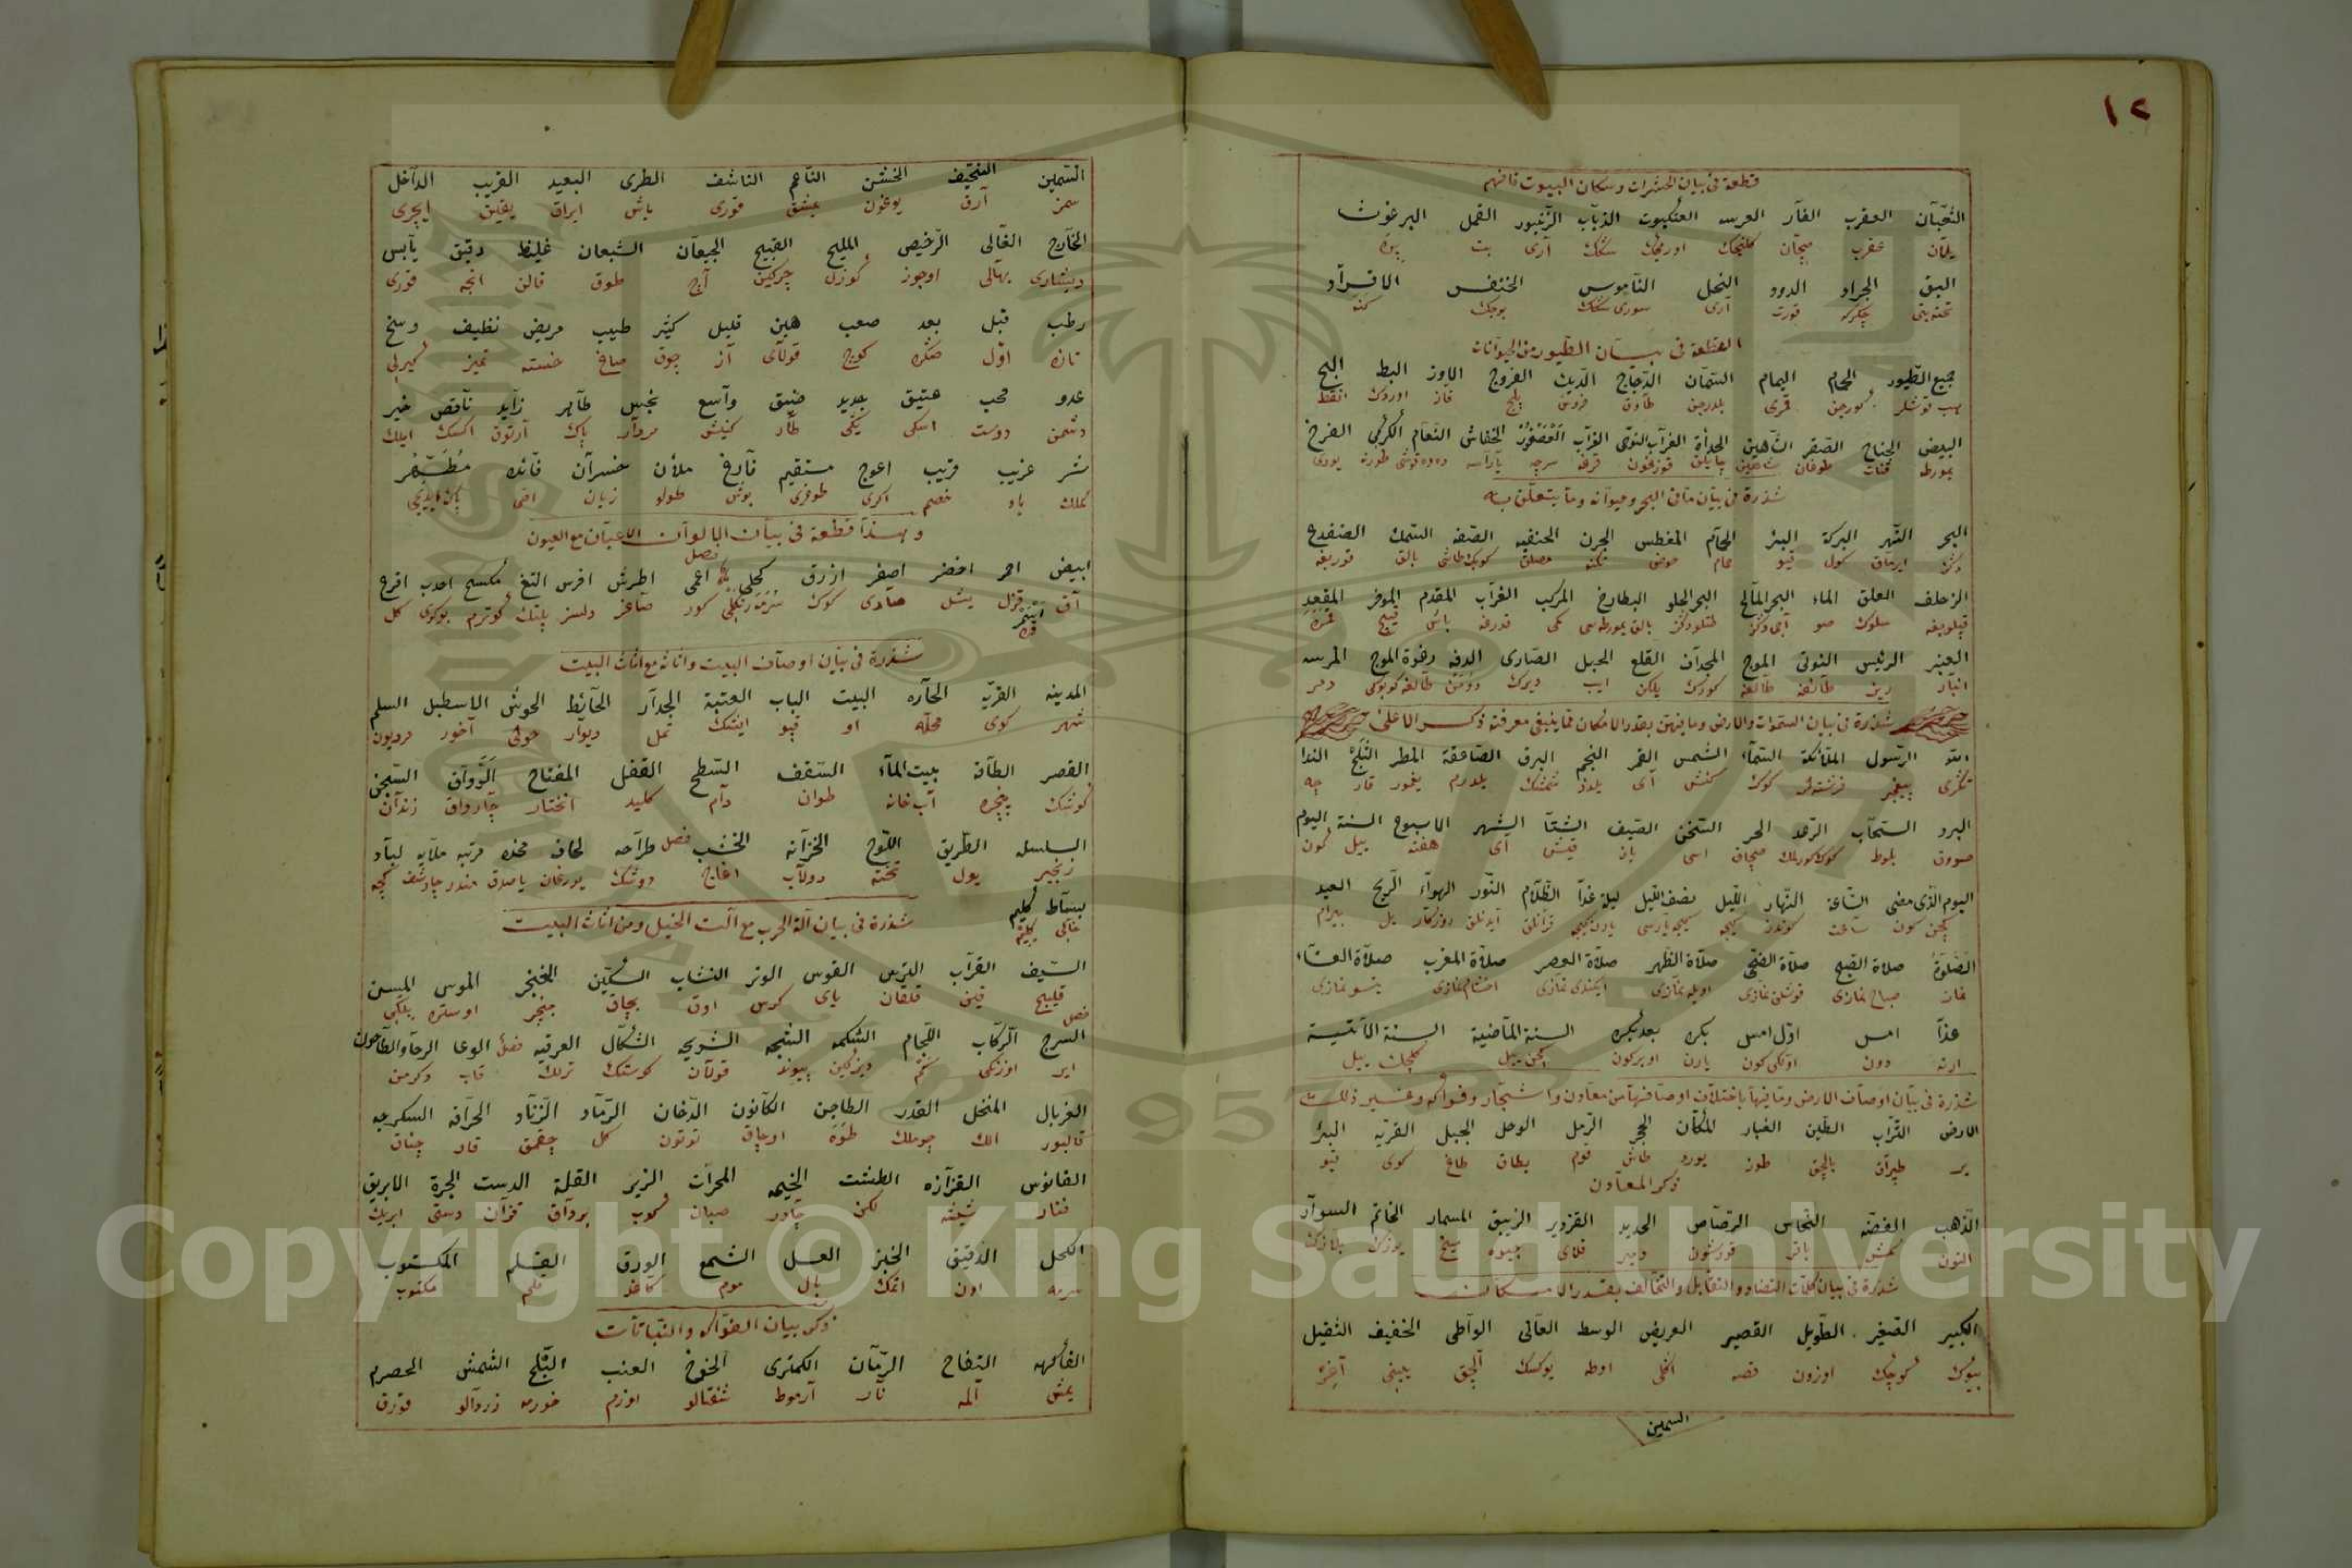 ١٢
قطعة فى بيان الحشرات وسكان البيوت فافهم
الثعبان العقرب الفأر العرسه العنكبوت الذباب الزنبور القمل البرغوث
يلان عقرب صچان كلنجك اورمجك سنك آرى بت پوره
البق الجراد الدود النحل الناموس الخنفس القراد
تخته بتى چكركه قورت آرى سورى سنك بوجك كنه
القطعة فى بيان الطيور من الحيوانات
جميع الطيور الحمام اليمام السمان الدجاج الديك الفروج الاوز البط البج
هپ قوشلر كورجن قمرى بلدرجن طاوق خروس پلج قاز اوردك
البيض الجناح الصقر الشاهين الحدأة الغراب النوحى الغراب العصفور الخفاش النعام الكركى الفرخ
يمورطه قنات طوغان شاهين چايلق قوزغون قرغه سرچه يارآسه دوه قوشى طورنه يورى
شذرة فى بيان ما فى البحر وحيوانه وما يتعلق به
البحر النهر البركة البئر الحمام المغطس الجرن الحنفيه الصفه السمك الضفدع
دكز ايرماق كول قيو حمام حوض تكنه مصلق كوبك طاشى بالق قوربغه
الزحلف العلق الماء البحر المالح البحر الحلو البطارخ المركب الغراب المقدم الموخر المقعد
قپلوبغه سلوك صو آجى دكز طتلو دكز بالق يمورطه سى كمى قدرغه باش قيچ
العنبر الرئيس النوتى الموج المجداف القلع الحبل الصارى الدفه رغوة الموج المرسه
انبار ريس طائفه طالغه كورك يلكن ايپ ديرك دومن طالغه كوپوكى دمر
شذرة فى بيان السموات والارض وما فيهن بقدر الامكان مما ينبغى معرفته ذكر الاعلى
الله الرسول الملائكة السماء الشمس القمر النجم البرق الصاعقة المطر الثلج الندا
تكرى پيغمبر فرشته لر كوك كنش آى يلدز شمشك يلدرم يغمور قار چه
البرد السحاب الرعد الحر السخن الصيف الشتا الشهر الاسبوع السنة اليوم
صووق بلوط كوك كورلمك صيجاق اسى ياز قيش آى هفته ييل كون
اليوم الذى مضى الساعة النهار الليل نصف الليل ليلة غدا الظلام النور الهواء الريح العيد
كچن كون ساعت كوندز كيجه كيجه ياريسى يارنكيجه قرانلق آيدنلق روزكار يل بيرام
الصلوة صلاة الصبح صلاة الضحى صلاة الظهر صلاة العصر صلاة المغرب صلاة العشاء
نماز صباح نمازى قوشلق نمازى اويله نمازى ايكندى نمازى اخشام نمازى يتسو نمازى
غدا امس اول امس بكره بعد بكره السنة الماضية السنة الآتية
ارته دون اولكى كون يارن اوبر كون كچن ييل كلجك ييل
شذرة فى بيان اوصاف الارض وما فيها باختلاف اوصافها من معادن واشجار وفواكه وغير ذلك
الارض التراب الطين الغبار المكان الحجر الرمل الوحل الجبل القريه البئر
ير طپراق بالچق طوز يورد طاش قوم بطاق طاغ كوى قيو
ذكر المعادن
الذهب الفضه النحاس الرصاص الحديد القزدير الزيبق المسمار الخاتم السوار
التون كمش باقر قورشون دمير قلاى جيوه ميخ يوزك بلازك
شذرة فى بيان كلمات التضاد والتقابل والتخالف بقدر الامكان
الكبير الصغير الطويل القصير العريض الوسط العالى الواطى الخفيف الثقيل
بيوك كوچك اوزون قصه اكلى اورطه يوكسك آلچق يينى آغر
السمين
السمين النحيف الخشن الناعم الناشف الطرى البعيد القريب الداخل
سمز آرق يوغون يمشق قورى ياش ايراق يقين ايچرى
الخارج الغالى الرخيص المليح القبيح الجيعان الشبعان غليظ دقيق يابس
ديشارى بهالى اوجوز كوزل چركين آج طوق قالن انجه قورى
رطب قبل بعد صعب هين قليل كثير طبيب مريض نظيف وسخ
تازه اول صكره كوج قولاى آز چوق صاغ خسته تميز كيرلى
عدو محب عتيق جديد ضيق واسع نجس طاهر زايد ناقص خير
دشمن دوست اسكى يكى طار كنيش مردار پاك آرتوق اكسك ايلك
شر غريب قريب اعوج مستقيم فارغ ملأن خسران فائده مطهر
كملك ياد خصم اكرى طوغرى بوش طولو زيان اصى
وهذا قطعة فى بيان الالوان الاعيان مع العيون
ابيض احمر اخضر اصفر ازرق كحلى فصل اعمى اطرش اخرس التغ مكسح احدب اقرع
آق قزل يشل صارى كوك سرمه رنكلى كور صاغر دلسز پلتك كوترم بوكرى كل
شذرة فى بيان اوصاف البيت واناثه مع اثاث البيت
المدينه القريه الحاره البيت الباب العتبة الجدار الحائط الحوش الاسطبل السلم
شهر كوى محله او قپو ايشك تمل ديوار حولى آخور مرديون
القصر الطاقة بيت الماء السقف السطح القفل المفتاح الرواق السجن
كوشك پنجره آبخانه طوان دام كليد انختار چارداق زندان
السلسله الطريق اللوح الخزانه الخشب فصل طراحه لحاف مخده مرتبه ملايه لباد
زنجير يول تخته دولاب اغاج دوشك يورغان ياصدق مندر چارشف كچه
بساط كليم
خالى كليم
شذرة فى بيان آلة الحرب مع آلت الخيل ومن اثاث البيت
السيف القراب الترس القوس الوتر النشاب السكين الخنجر الموسى المسن
قليج قين قلقان ياى كرس اوق بچاق خنجر اوستره بيلكى
فصل
السرج الركاب اللجام الشكمه الشبجه الشريحه الشكال العرقيه فصل الوعا الرحا والطاحون
اير اوزنكى كم ديزكين پيوند قولان كوستك ترلك قاب دكرمن
الغربال المنخل القدر الطاجن الكانون الدخان الرماد الزناد الحراقه السكرجه
قالبور الك چوملك طوه اوجاق توتون كل چقمق قاو چناق
الفانوس القزازه الطشت الخيمه المحراث الزير القلة الدست الجرة الابريق
فنار شيشه لكن چادر صبان كوپ بردآق قزان دستى ابريك
الكحل الدقيق الخبز العسل الشمع الورق القلم المكتوب
سرمه اون اتمك بال موم كاغد قلم مكتوب
ذكر بيان الفواكه والنباتات
الفأكهه التفاح الرمان الكمثرى الخوخ العنب البلح المشمش الحصرم
يمش آلمه نار آرموط شفتالو اوزم خورمه زردالو قورق
Copyright © King Saud University
1957